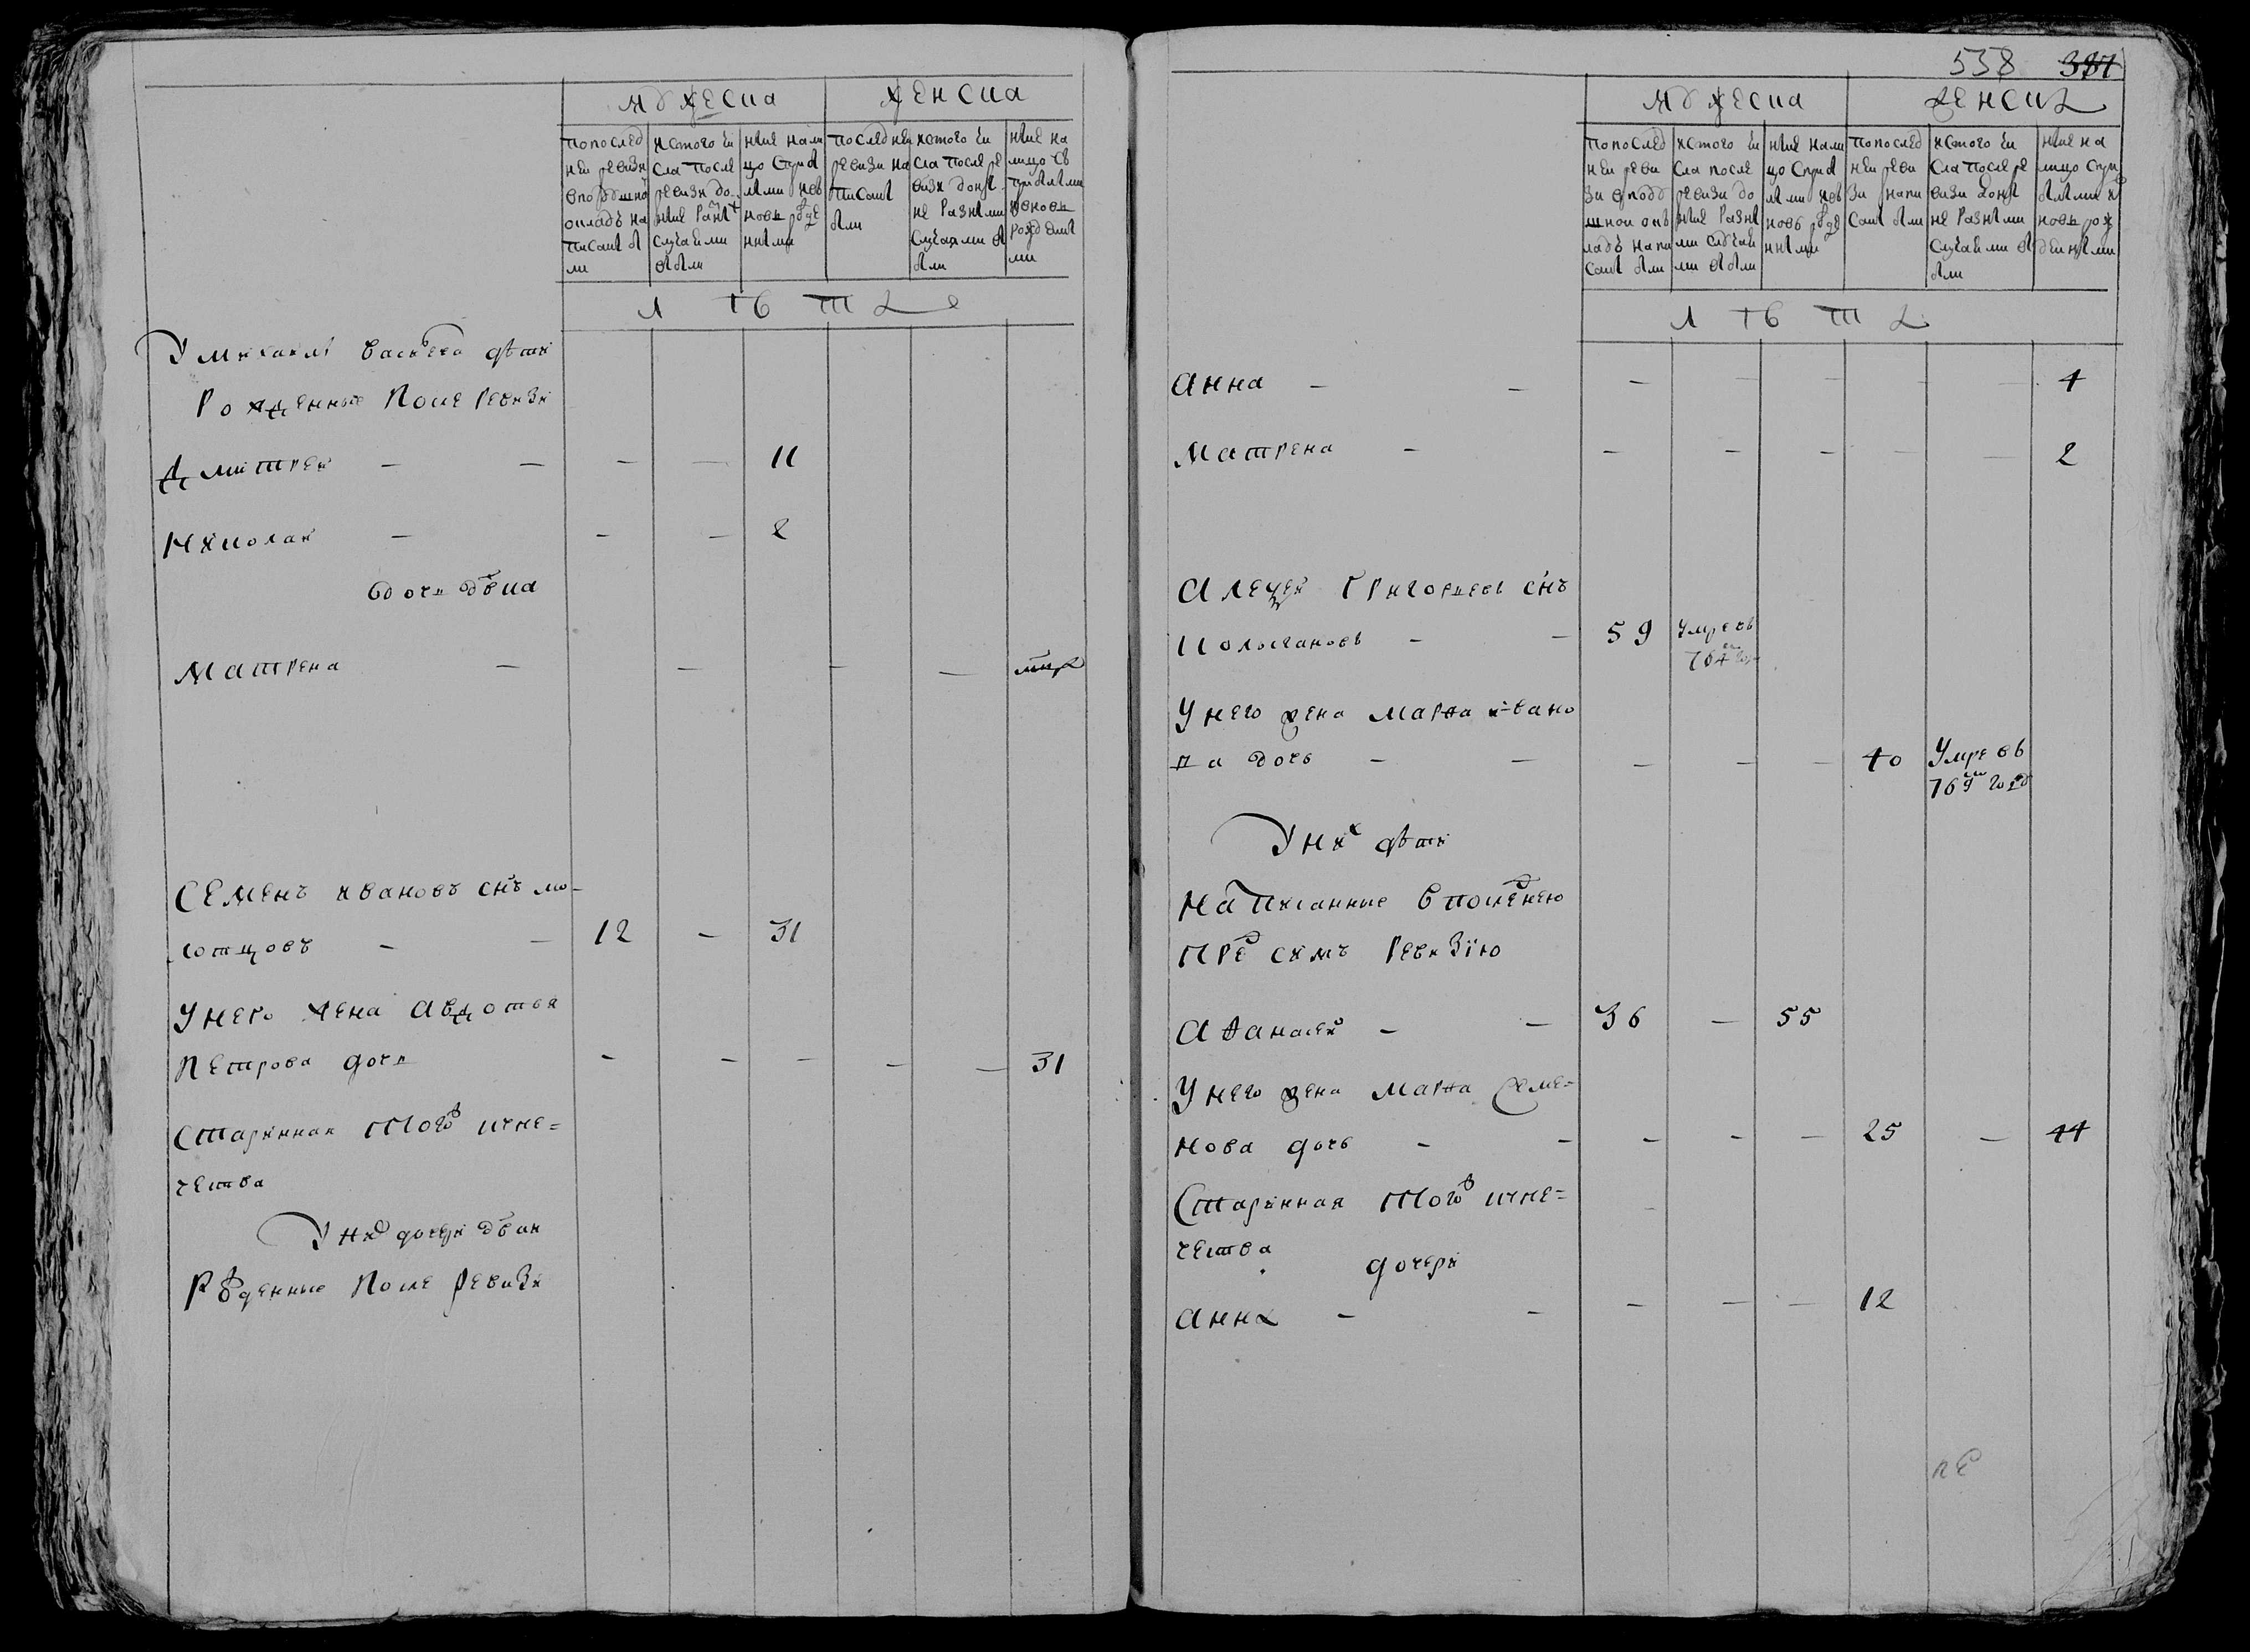 мужеска
женска
по послед
ней ревизи
в подушно
окладъ на
писаны бы
ли
ис того чи
сла после
ревизи до
ныне разны
случаими
выбыли
ныне нали
цо с приб
лыми и в
новь рожде
нными
по последней
ревизи на
писаны
были
ис того чи
сла после ре
визи доны
не разными
случаями вы
были
ныне на
лицо с
прибылыми
и вновь
рожденны
ми
лѣта
У михаилы васильева дѣти
Рожденные После Ревизи
Дмитрей — — — — 11
Николай — — — 2
дочь двка
Матрена — — — —
Семенъ ивановъ снъ мо-
лотцовъ — — 12 — 31
У него жена Авдотья
Петрова дочь — — — — — 31
Старинная того ж кне=
чества
У них дочери двки
Рожденные После Ревизи
538 387
мужеска
женска
по послед
ней реви
зи в поду
шной ок
ладъ напи
саны были
ис того чи
сла после
ревизи до
ныне разны
ми случаи
ми выбыли
ныне нали
цо с приб
лыми и в
новь рожде
нными
по послед
ней реви
зи напи
саны были
ис того чи
сла после ре
визи доны
не разными
случаими вы
были
ныне на
лицо с при
былыми и в
новь рож
денными
лѣта
Анна — — — — — — — 4
Матрена — — — — — — 2
Алексей Григорьевъ снъ
Колосгановъ — — 59 Умре въ
764м году
У него жена Марфа ивано
ва дочь — — — — — 40 Умре въ
769м году
У них дѣти
Написанные в последнею
пред симъ Ревизiю
Афанасей — — 36 — 55
У него жена Марфа Семе=
нова дочь — — — — — 25 — 44
Старинная того ж кне=
чества
дочери
Анна — — — — — 12